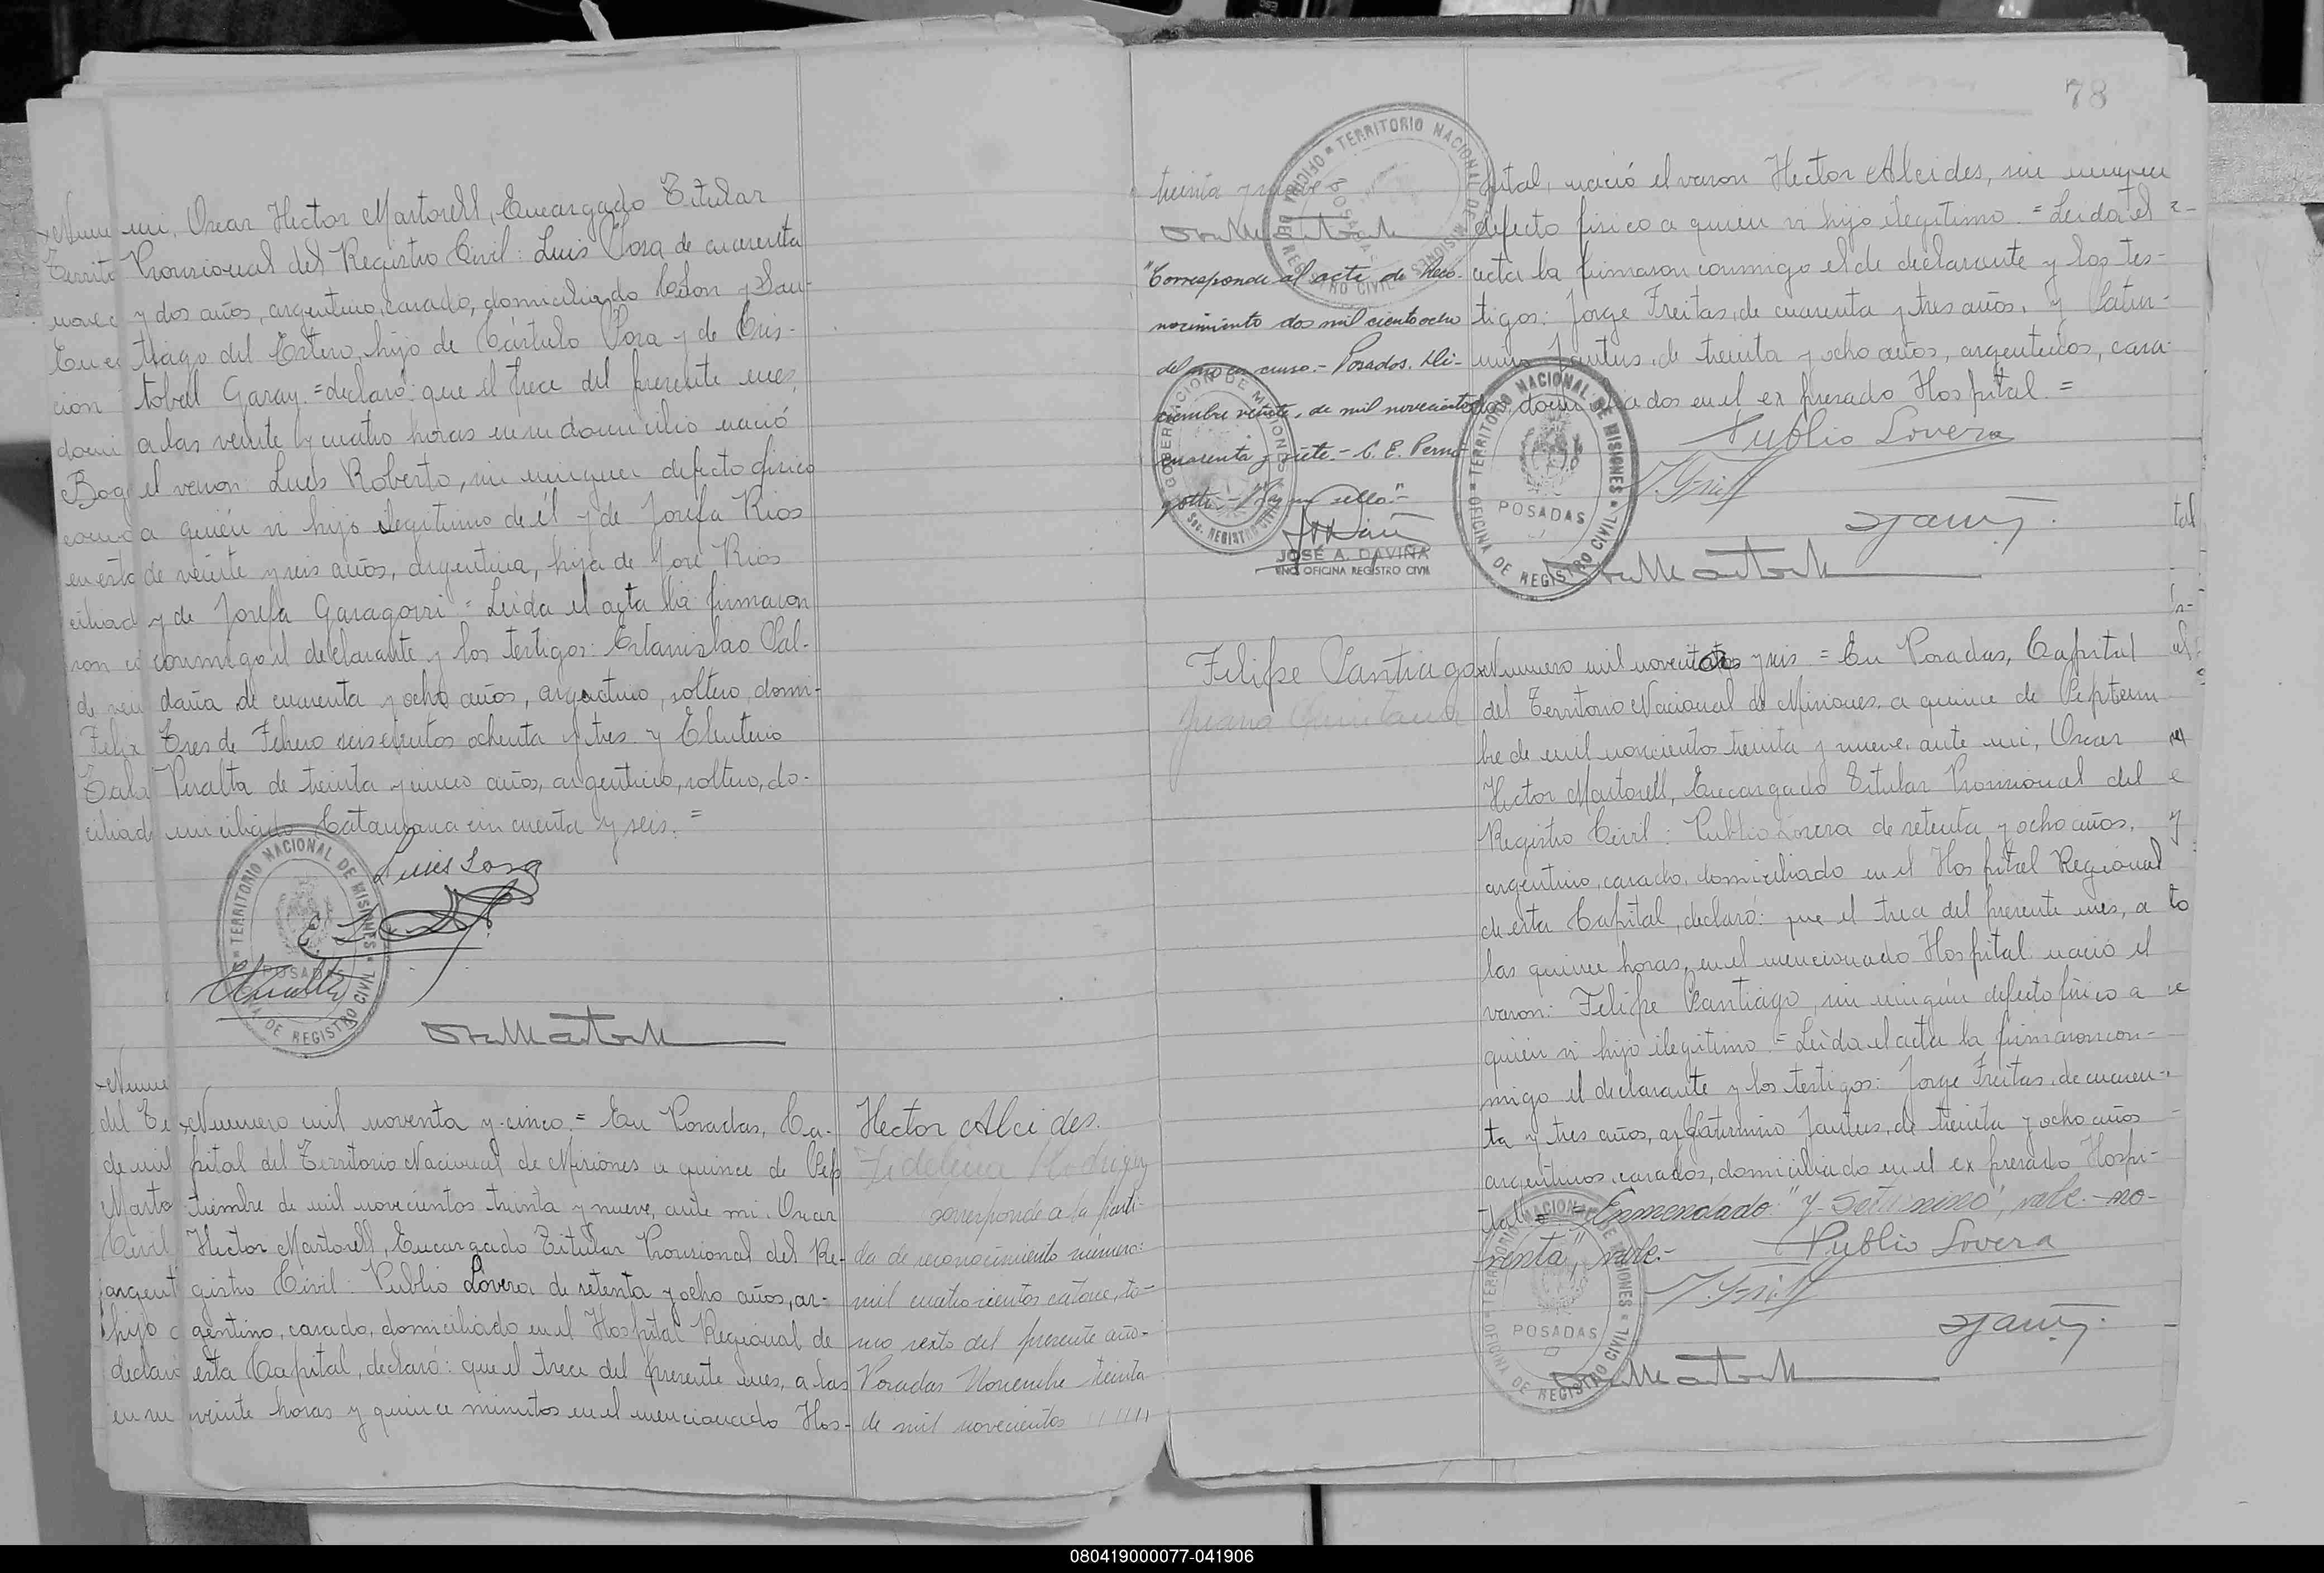 mi, Oscar Hector Martorell, Encargado Titular
Provisional del Registro Civil: Luis Sosa de cuarenta
y dos años, argentino, casado, domiciliado Colon y San-
tiago del Estero, hijo de Cástulo Sosa y de Cris-
tobal Garay. = declaró: que el trece del presente mes,
a las veinte y cuatro horas en su domicilio nació
el varon: Luis Roberto, sin ningun defecto fisico
a quién vi hijo ilegitimo de él y de Josefa Rios
de veinte y seis años, argentina, hija de José Rios
y de Josefa Garagorri = Leida el acta la firmaron
conmigo el declarante y los testigos: Estanislao Sal-
daña de cuarenta y ocho años, argentino, soltero, domi-
Tres de Febrero seiscientos ochenta y tres y Eleuterio
Peralta de treinta y cinco años, argentino, soltero, do-
miciliado Catamarca cincuenta y seis. =
TERRITORIO NACIONAL DE MISIONES
POSADAS
OFICINA DE REGISTRO CIVIL
Luis Sosa
Numero mil noventa y cinco = En Posadas, Ca-
pital del Territorio Nacional de Misiones a quince de Sep
tiembre de mil novecientos treinta y nueve, ante mi, Oscar
Hector Martorell, Encargado Titular Provisional del Re-
gistro Civil: Publio Lovera de setenta y ocho años, ar-
gentino, casado, domiciliado en el Hospital Regional de
esta Capital, declaró: que el trece del presente mes, a las
veinte horas y quince minutos en el mencionado Hos-
Hector Alcides.
Fidelina Rodriguez
corresponde a la parti-
da de reconocimiento número:
mil cuatrocientos catorce, to-
mo sexto del presente año-
Posadas Noviembre treinta
de mil novecientos
78
treinta y nueve
TERRITORIO NACIONAL DE MISIONES
POSADAS
OFICINA DE REGISTRO CIVIL
"Corresponde al acta de Reco-
nocimiento dos mil ciento ocho
del año en curso.- Posadas, Di-
ciembre veinte, de mil novecientos
cuarenta y siete.- C. E. Perni-
gotti - Hay un sello"-
GOBERNACION DE MISIONES
Sec. REGISTRO CIVIL
JOSÉ A. DAVIÑA
ENC. OFICINA REGISTRO CIVIL
pital, nació el varon Hector Alcides, sin ningun
defecto fisico a quien vi hijo ilegitimo. = Leida el
acta la firmaron conmigo el de declarante y los tes-
tigos: Jorge Freitas, de cuarenta y tres años, y Satur-
nino Jantus, de treinta y ocho años, argentinos, casa-
dos, domiciliados en el expresado Hospital. =
Publio Lovera
TERRITORIO NACIONAL DE MISIONES
POSADAS
OFICINA DE REGISTRO CIVIL
Felipe Santiago
Numero mil noventa y seis = En Posadas, Capital
del Territorio Nacional de Misiones, a quince de Septiem
bre de mil novecientos treinta y nueve, ante mi, Oscar
Hector Martorell, Encargado Titular Provisional del
Registro Civil: Publio Lovera de setenta y ocho años,
argentino, casado, domiciliado en el Hospital Regional
de esta Capital, declaró: que el trece del presente mes, a
las quince horas, en el mencionado Hospital nació el
varon: Felipe Santiago, sin ningún defecto físico a
quién vi hijo ilegitimo. = Leída el acta la firmaron con-
migo el declarante y los testigos: Jorge Freitas, de cuaren-
ta y tres años, y Saturnino Jantus, de treinta y ocho años
argentinos, casados, domiciliado en el expresado Hospi-
tal = = Enmendado: "y Saturnino", vale.- "no-
venta", vale.-
Publio Lovera
TERRITORIO NACIONAL DE MISIONES
POSADAS
OFICINA DE REGISTRO CIVIL
080419000077-041906